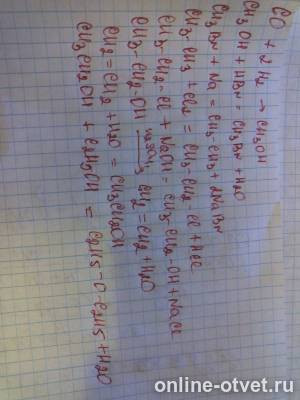 CO + 2H₂ → CH₃OH
CH₃OH + HBr = CH₃Br + H₂O
CH₃Br + Na = CH₃-CH₃ + 2NaBr
CH₃-CH₃ + Cl₂ = CH₃-CH₂Cl + HCl
CH₃-CH₂-Cl + NaOH = CH₃-CH₂-OH + NaCl
CH₃-CH₂-OH → CH₂=CH₂ + H₂O
CH₂=CH₂ + H₂O = CH₃CH₂OH
CH₃CH₂OH + C₂H₅OH = C₂H₅-O-C₂H₅ + H₂O
online-otvet.ru